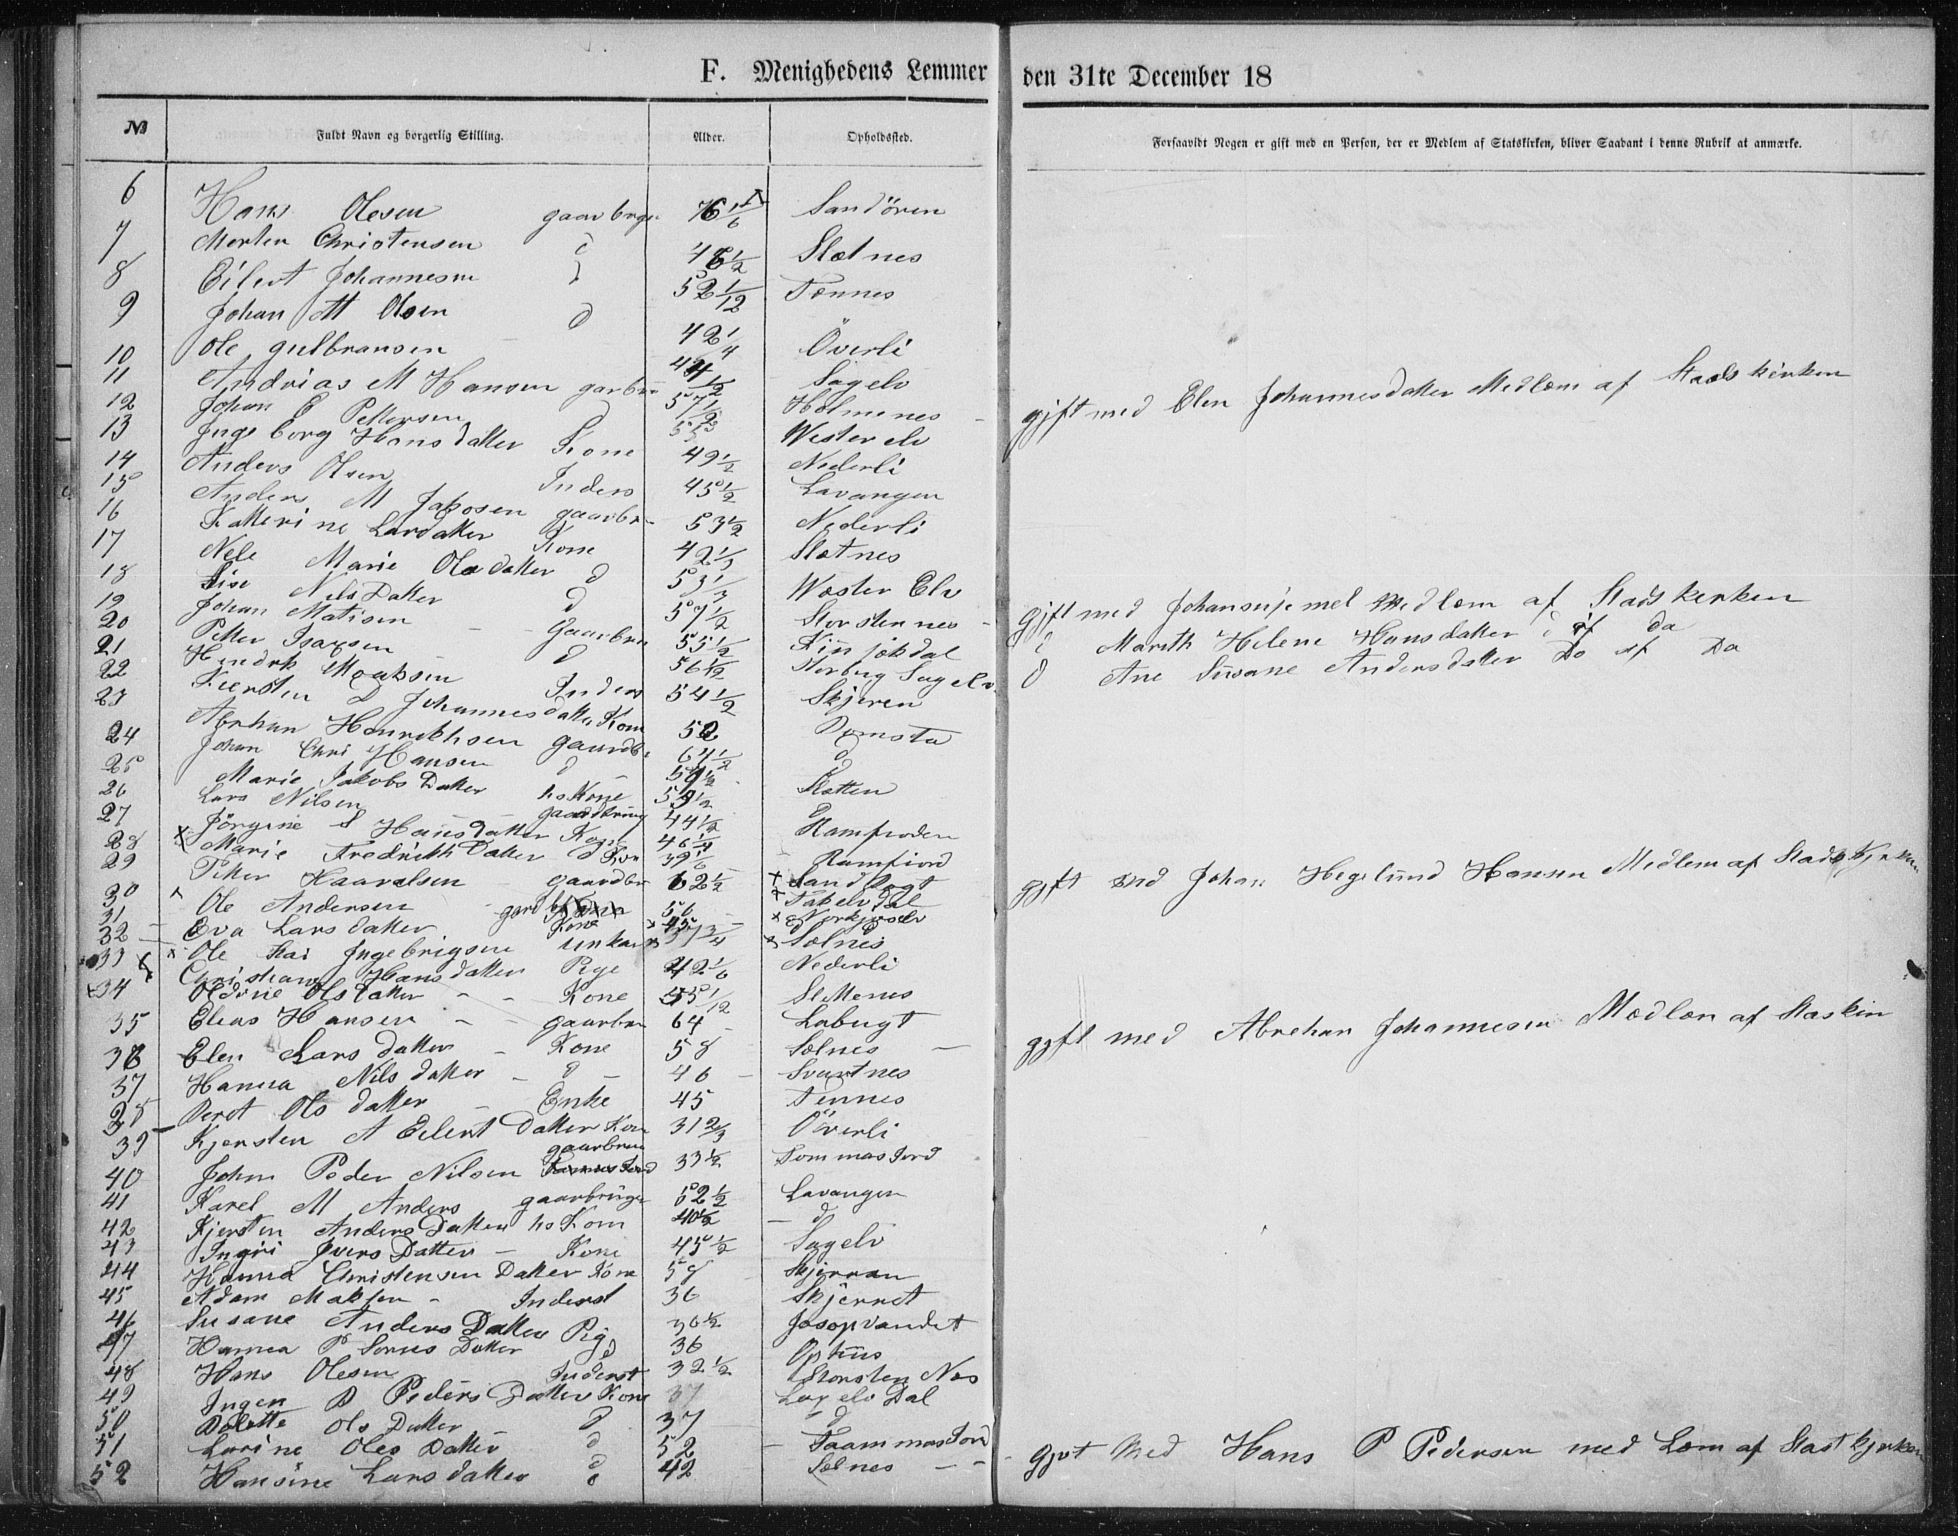 F. Menighedens Lemmer den 31te December 18
№ Fuldt Navn og borgerlig Stilling. Alder. Opholdssted. Forsaavidt Nogen er gift med en Person, der er Medlem af Statskirken, bliver Saadant i denne Rubrik at anmærke.
6 Hans Olesen gaarbrger 76 1/6 Sandören
7 Morten Christensen d 48 1/2 Sletnes
8 Eilert Johannesen d 52 1/12 Tennes
9 Johan M Olsen d
10 Ole gulbransen 42 1/4 Överli
11 Andrias M Hansen garbru 44 1/2 Sagelv gift med Elen Johannesdatter Medlem af Stadskirken
12 Johan E Pettersen d 57 1/2 Holmenes
13 Ingeborg Hansdatter Kone 55 Westerelv
14 Anders Olsen Inders 49 1/2 Nederli
15 Anders M Jakosen gaarbr 45 1/2 Lavangen
16 Katterine Larsdatter Kone 53 1/2 Nederli
17 Nele Marie Olsdatter d 42 1/3 Sletnes
18 Lise NilsDatter d 53 1/3 Wester Elv
19 Johan Matisen Gaarbru 57 1/2 Storstennes gift med Johansuje mel Medlem af Stadskerken
20 Petter Isaqsen d 55 1/2 Kinjokdal d Mareth Helene Hansdatter d af da
21 Hendrk Moaksen Inders 56 1/2 Norbug Sagelv d Ane Susane Andersdatter Do af Do
22 Kiersten L Johannesdatter Kone 54 1/2 Skjeren
23 Abrhan Henrikhsen gaurdbr 52
24 Johan Chri Hansen d 64 1/2 d
25 Marie JakobsDatter hs Kone 54 1/2 Slatten
26 Lars Nilsen gaardbrug 59 1/2
27 Jörgine S HansDatter Kone 44 1/2 Ramfioden
28 x Marie FredrikhDatter d Kon 46 1/4 Ramfiord gift med Johan Hegelund Hansen Medlem af Stadskjrken
29 Peter Haavalsen gaardbr 62 1/2 x Sandbogt
30 x Ole Andersen gard 56 x TakelvDal
31 Eva Larsdatter Kone 45
32 x Ole Hai Ingebrigsen unkar 57 3/4 x Solnes
33 Christiane Hansdatter Pige 42 1/6 Nederli
x34 Oldine Olsdatter Kone 45 1/12 Slettenes
35 Elias Hansen gaarbru 64 Labugt gift med Abrehan Johannesen Medlem af Staskin
36 Elen Larsdatter Kone 58 Solnes
37 Hanna Nilsdatter d 46 Svartnes
38 Beret Olsdatter Enke 45 Tennes
39 Kjersten A EilertDatter Kone 31 2/3 Överli
40 Johan Peder Nilsen gaarbrun 33 1/2 Tommasiord
41 Karel M Anders gaarbruger 52 1/2 Lavangen
42 Kjersten AndersDatter hs Kone 40 1/2 d
43 Ingri IversDatter Kone 45 1/2 Sagelv
44 Hanna ChristensenDatter Kone 58 Skjerran
45 Adam Maksen Inderst 36 Skjerret
46 Susane AndersDatter Pig 36 1/2 Josopvandet
47 Hanna P SorusDatter d 36
48 Hans Olesen Inderst 32 1/2 Storsten Nes
49 Ingen B PedersDatter Kone 37 LagelvDal
50 Dolette OlsDatter d 37 d
51 Lorine OlesDatter d 52 Taammasiord gjvt Med Hans P Pedersen med Lem af Stastkjerken
52 Hansine Larsdatter d 42 Solnes